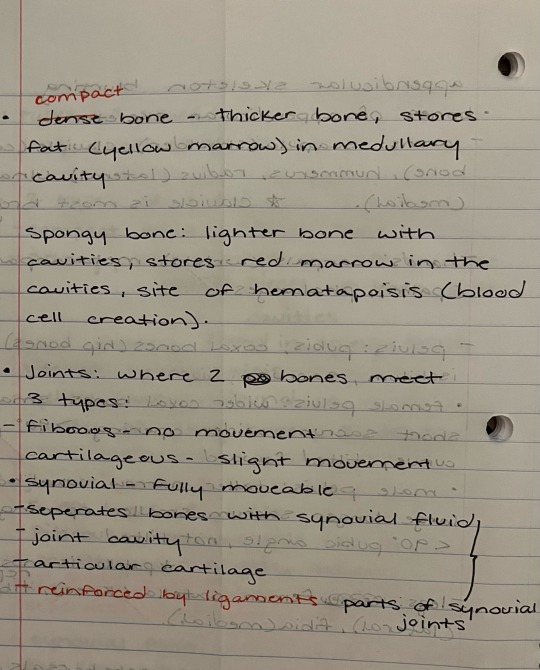 compact
• dense bone - thicker bone, stores
fat (yellow marrow) in medullary
cavity
Spongy bone: lighter bone with
cavities, stores red marrow in the
cavities, site of hematapoisis (blood
cell creation).
• Joints: where 2 bones meet
3 types:
- fiborous - no movement
cartilageous - slight movement
• synovial - fully moveable
- seperates bones with synovial fluid
- joint cavity
- articular cartilage
- reinforced by ligaments parts of synovial
joints